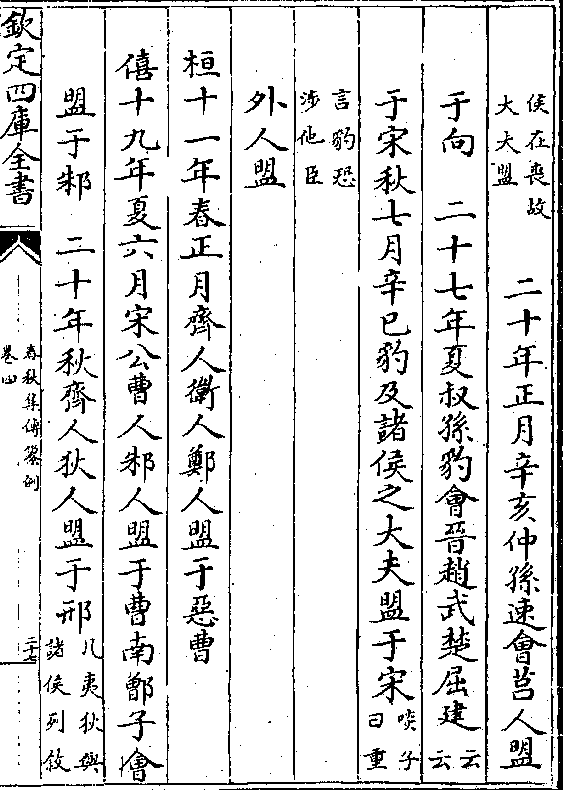 侯在喪故
大夫盟　二十年正月辛亥仲孫速會莒人盟
于向　二十七年夏叔孫豹會晉趙武楚屈建云云
于宋秋七月辛巳豹及諸侯之大夫盟于宋啖子曰重
言豹恐
涉他臣
外人盟
桓十一年春正月齊人衛人鄭人盟于惡曹
僖十九年夏六月宋公曹人邾人盟于曹南鄫子㑹
盟于邾　二十年秋齊人狄人盟于邢凡夷狄與
諸侯列敘
欽定四庫全書
春秋集傳纂例
卷四
二十七